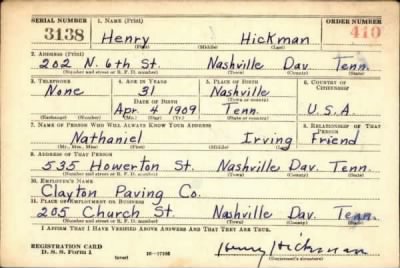 SERIAL NUMBER 1. NAME (Print) ORDER NUMBER
3138 Henry Hickman 410
(First) (Middle) (Last)
2. ADDRESS (Print)
202 N. 6th St. Nashville Dav. Tenn.
(Number and street or R. F. D. number) (Town) (County) (State)
3. TELEPHONE 4. AGE IN YEARS 5. PLACE OF BIRTH 6. COUNTRY OF CITIZENSHIP
None 31 Nashville
DATE OF BIRTH (Town or county)
Apr. 4 1909 Tenn. U.S.A.
(Exchange) (Number) (Mo.) (Day) (Yr.) (State or country)
7. NAME OF PERSON WHO WILL ALWAYS KNOW YOUR ADDRESS 8. RELATIONSHIP OF THAT PERSON
Nathaniel Irving Friend
(Mr., Mrs., Miss) (First) (Middle) (Last)
9. ADDRESS OF THAT PERSON
535 Howerton St. Nashville Dav. Tenn.
(Number and street or R. F. D. number) (Town) (County) (State)
10. EMPLOYER'S NAME
Clayton Paving Co.
11. PLACE OF EMPLOYMENT OR BUSINESS
205 Church St. Nashville Dav. Tenn.
(Number and street or R. F. D. number) (Town) (County) (State)
I AFFIRM THAT I HAVE VERIFIED ABOVE ANSWERS AND THAT THEY ARE TRUE.
REGISTRATION CARD
D. S. S. Form 1 (over) Henry Hickman
(Registrant's signature)